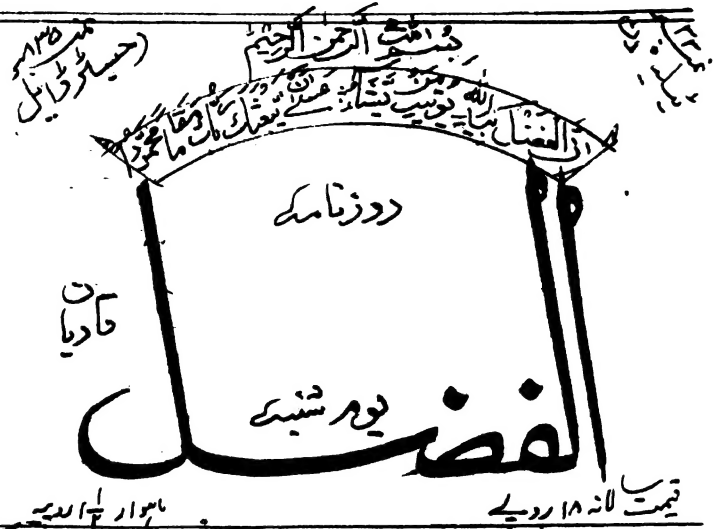 رجسٹرڈ ایل نمبر ۸۳۵
بسم اللہ الرحمن الرحیم
ٹیلیفون نمبر ۳۳
ان الفضل بید اللہ یوتیہ من یشاء عسی ان یبعثک ربک مقاما محمودا
روزنامہ
قادیان
الفضل
یوم شنبہ
قیمت سالانہ ۱۸ روپے
ماہوار ۱ ۱/۲ روپیہ